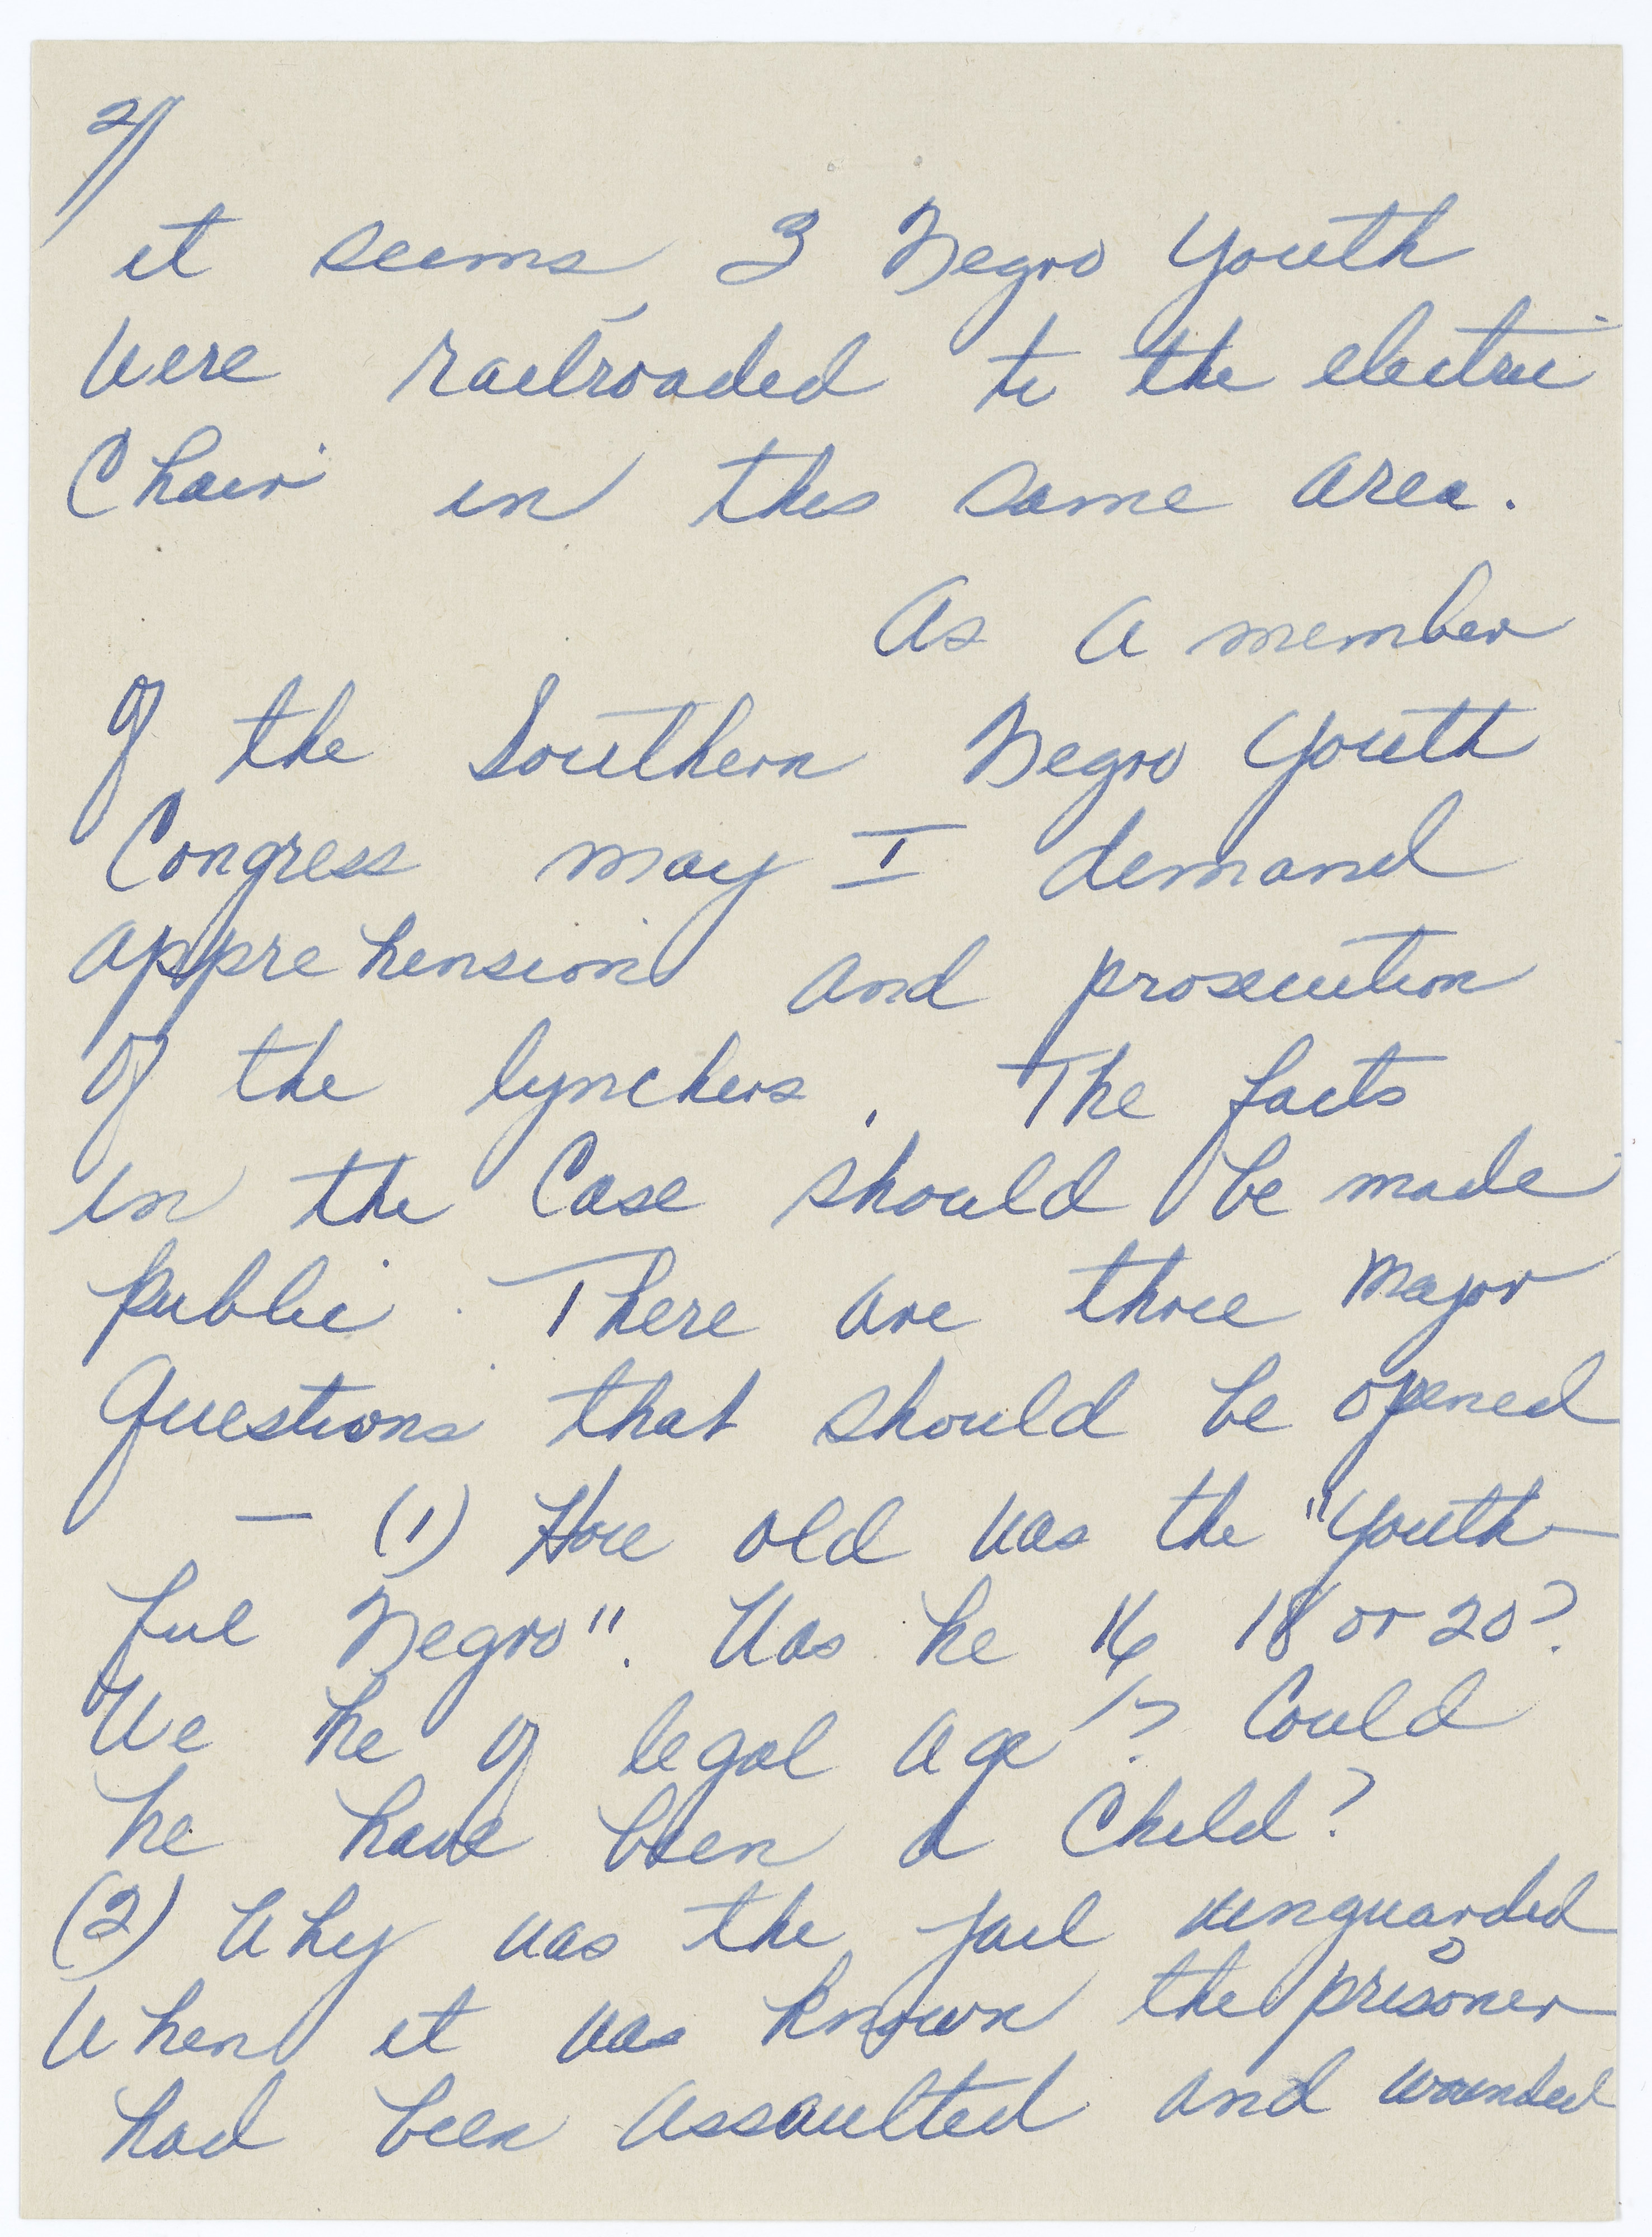 2//
it seems, 3 Negro Youth
were railroaded to the electric
Chair in this same area.
As a member
of the Southern Negro Youth
Congress may I demand
apprehension and prosecution
of the lynchers. The facts
in the Case should be made
public. There are three major
Questions that should be opened
— (1) How old was the "Youth-
ful Negro". Was he 16 18 or 20?
We he of legal age? Could
he have been a Child?
(2) Why was the jail unguarded
When it was known the prisoner
had been assaulted and wounded